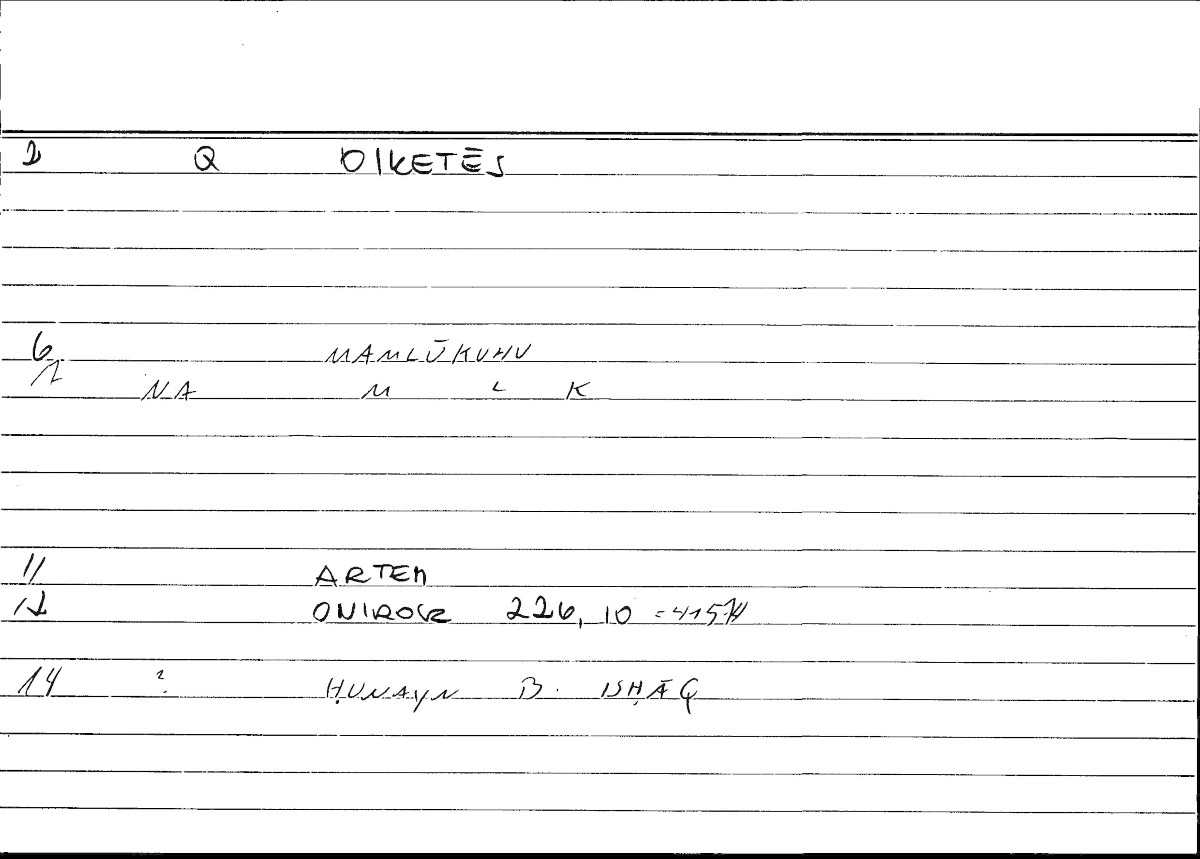 2 Q OIKETĒS
6 MAMLŪKUHU
/7 NA M L K
11 ARTEM
12 ONIROCR 226, 10
14 ? ḤUNAYN B. ISḤĀQ